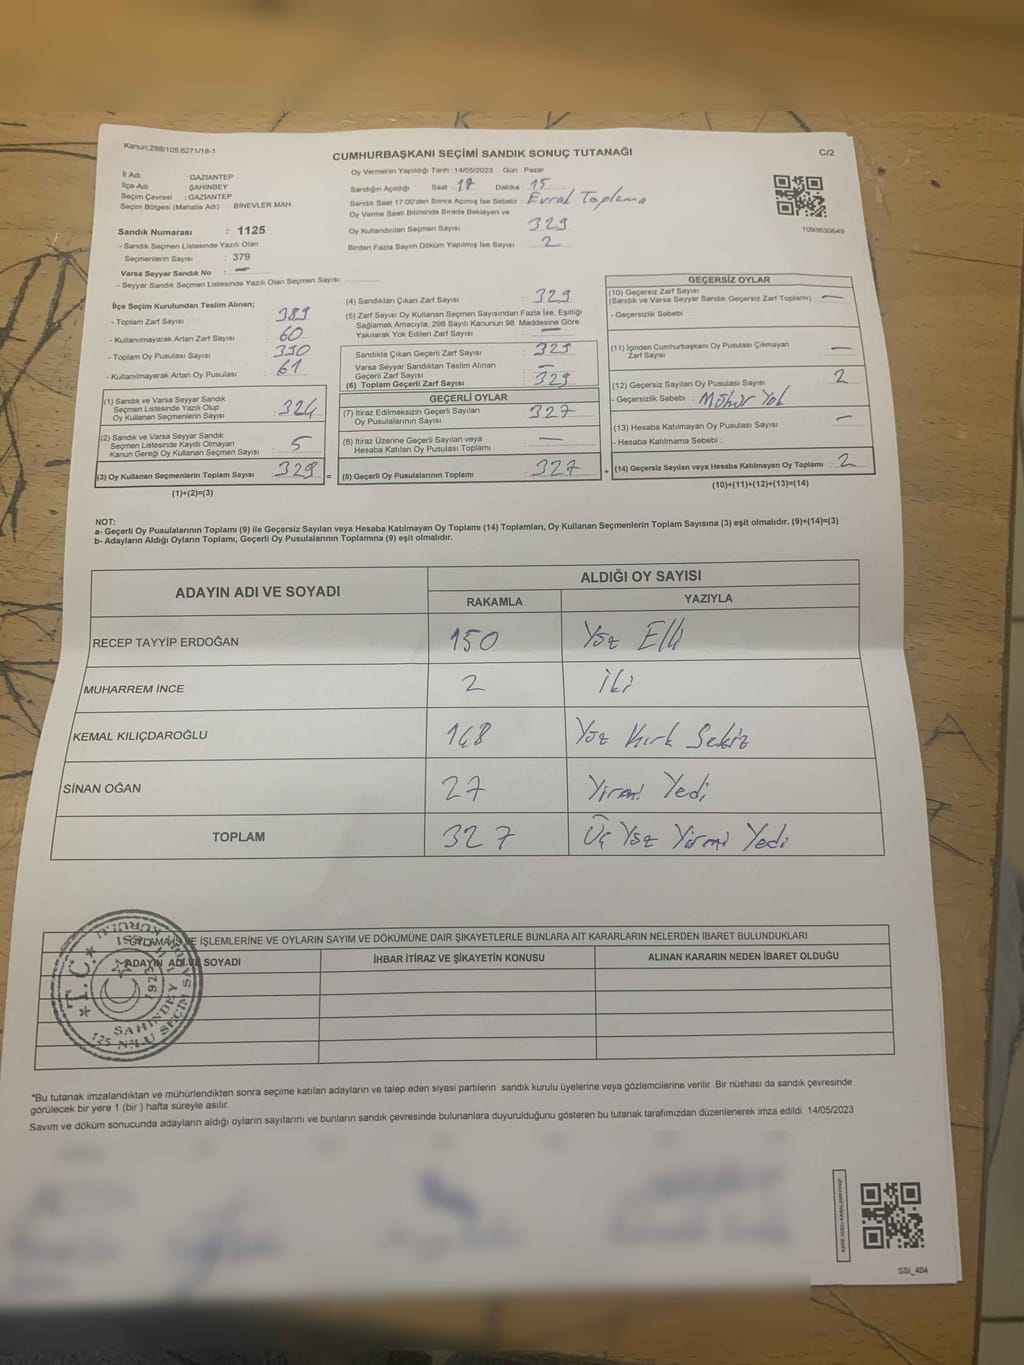 Kanun:298/105,6271/18-1
CUMHURBAŞKANI SEÇİMİ SANDIK SONUÇ TUTANAĞI
C/2
İl Adı GAZIANTEP
İlçe Adı ŞAHINBEY
Seçim Çevresi : GAZIANTEP
Seçim Bölgesi (Mahalle Adı) : BİNEVLER MAH.
Oy Vermenin Yapıldığı Tarih :14/05/2023 Gün : Pazar
Sandığın Açıldığı Saat 17 Dakika : 15
Sandık Saat 17:00'den Sonra Açımış İse Sebebi : Evrak Toplama
Oy Verme Saati Bitiminde Sırada Bekleyen ve
Oy Kullandırılan Seçmen Sayısı 329
Birden Fazla Sayım Döküm Yapılmış İse Sayısı : 2
1093630649
Sandık Numarası : 1125
- Sandık Seçmen Listesinde Yazılı Olan
Seçmenlerin Sayısı : 379
Varsa Seyyar Sandık No : —
- Seyyar Sandık Seçmen Listesinde Yazılı Olan Seçmen Sayısı
İlçe Seçim Kurulundan Teslim Alınan;
- Toplam Zarf Sayısı 389
- Kullanılmayarak Artan Zarf Sayısı : 60
- Toplam Oy Pusulası Sayısı
- Kullanılmayarak Artan Oy Pusulası : 61
(1) Sandık ve Varsa Seyyar Sandık
Seçmen Listesinde Yazılı Olup
Oy Kullanan Seçmenlerin Sayısı 324
(2) Sandık ve Varsa Seyyar Sandık
Seçmen Listesinde Kayıtlı Olmayan
Kanun Gereği Oy Kullanan Seçmen Sayısı : 5
(3) Oy Kullanan Seçmenlerin Toplam Sayısı : 329 =
(1)+(2)=(3)
(4) Sandıktan Çıkan Zarf Sayısı 329
(5) Zarf Sayısı Oy Kullanan Seçmen Sayısından Fazla İse, Eşitliği
Sağlamak Amacıyla; 298 Sayılı Kanunun 98. Maddesine Göre
Yakılarak Yok Edilen Zarf Sayısı : —
Sandıkta Çıkan Geçerli Zarf Sayısı : 329
Varsa Seyyar Sandıktan Teslim Alınan
Geçerli Zarf Sayısı —
(6) Toplam Geçerli Zarf Sayısı : 329
GEÇERLİ OYLAR
(7) İtiraz Edilmeksizin Geçerli Sayılan
Oy Pusulalarının Sayısı : 327
(8) İtiraz Üzerine Geçerli Sayılan veya
Hesaba Katılan Oy Pusulası Toplamı : —
(9) Geçerli Oy Pusulalarının Toplamı : 327 +
GEÇERSİZ OYLAR
(10) Geçersiz Zarf Sayısı
(Sandık ve Varsa Seyyar Sandık Geçersiz Zarf Toplamı) : —
- Geçersizlik Sebebi :
(11) İçinden Cumhurbaşkanı Oy Pusulası Çıkmayan
Zarf Sayısı : —
(12) Geçersiz Sayılan Oy Pusulası Sayısı : 2
- Geçersizlik Sebebi : Mühür Yok
(13) Hesaba Katılmayan Oy Pusulası Sayısı : —
- Hesaba Katılmama Sebebi :
(14) Geçersiz Sayılan veya Hesaba Katılmayan Oy Toplamı : 2
(10)+(11)+(12)+(13)=(14)
NOT:
a- Geçerli Oy Pusulalarının Toplamı (9) ile Geçersiz Sayılan veya Hesaba Katılmayan Oy Toplamı (14) Toplamları, Oy Kullanan Seçmenlerin Toplam Sayısına (3) eşit olmalıdır. (9)+(14)=(3)
b- Adayların Aldığı Oyların Toplamı, Geçerli Oy Pusulalarının Toplamına (9) eşit olmalıdır.
ADAYIN ADI VE SOYADI ALDIĞI OY SAYISI
RAKAMLA YAZIYLA
RECEP TAYYİP ERDOĞAN 150 Yüz Elli
MUHARREM İNCE 2 İki
KEMAL KILIÇDAROĞLU 148 Yüz Kırk Sekiz
SİNAN OĞAN 27 Yirmi Yedi
TOPLAM 327 Üç Yüz Yirmi Yedi
İŞLEMLERİNE VE OYLARIN SAYIM VE DÖKÜMÜNE DAİR ŞİKAYETLERLE BUNLARA AİT KARARLARIN NELERDEN İBARET BULUNDUKLARI
ADAYIN ADI VE SOYADI İHBAR İTİRAZ VE ŞİKAYETİN KONUSU ALINAN KARARIN NEDEN İBARET OLDUĞU
*T.C.*
1923
ŞAHİNBEY
*Bu tutanak imzalandıktan ve mühürlendikten sonra seçime katılan adayların ve talep eden siyasi partilerin sandık kurulu üyelerine veya gözlemcilerine verilir .Bir nüshası da sandık çevresinde
görülecek bir yere 1 (bir ) hafta süreyle asılır.
Sayım ve döküm sonucunda adayların aldığı oyların sayılarını ve bunların sandık çevresinde bulunanlara duyurulduğunu gösteren bu tutanak tarafımızdan düzenlenerek imza edildi. 14/05/2023
KARE KODU KARALAMAYINIZ!
SSI_404